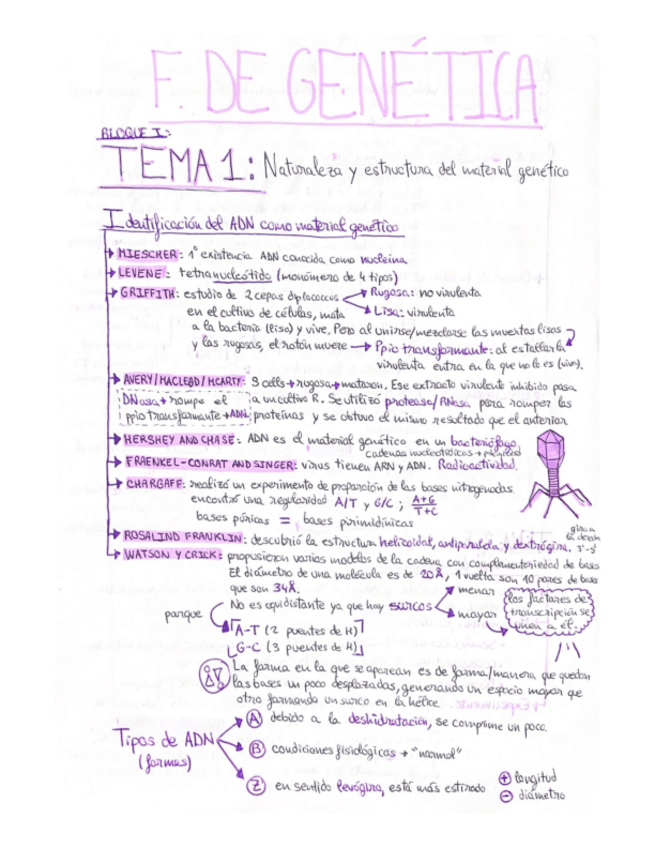 F. DE GENÉTICA
BLOQUE I:
TEMA 1: Naturaleza y estructura del material genético
Identificación del ADN como material genético
MIESCHER: 1ª existencia ADN conocida como nucleína
LEVENE: tetranucleótido (monómero de 4 tipos)
GRIFFITH: estudio de 2 cepas diplococcus
Rugosa: no virulenta
Lisa: virulenta
en el cultivo de células, mata
a la bacteria (lisa) y vive. Pero al unirse/mezclarse las muertas lisas
y las rugosas, el ratón muere → Ppio transformante: al estallar la
virulenta entra en la que no lo es (vive).
AVERY/MACLEOD/MCARTY: S cells + rugosa → mataron. Ese extracto virulento inhibido pasa
DNasa → rompe el
ppio transformante → ADN
a un cultivo R. Se utilizó proteasa/RNasa para romper las
proteínas y se obtuvo el mismo resultado que el anterior
HERSHEY AND CHASE: ADN es el material genético en un bacteriófago
cadenas nucleotídicas +
FRAENKEL-CONRAT AND SINGER: virus tienen ARN y ADN. Radioactividad.
CHARGAFF: realizó un experimento de proporción de las bases nitrogenadas
encontró una regularidad A/T y G/C ; A+G
T+C
bases púricas = bases pirimidínicas
ROSALIND FRANKLIN: descubrió la estructura helicoidal, antiparalela y dextrógira.
gira a
la derecha
3'-5'
WATSON Y CRICK: propusieron varios modelos de la cadena con complementariedad de bases
El diámetro de una molécula es de 20Å, 1 vuelta son 10 pares de bases
que son 34Å.
No es equidistante ya que hay surcos
menor
mayor
los factores de
transcripción se
unen a él.
parque
A-T (2 puentes de H)
G-C (3 puentes de H)
La forma en la que se aparean es de forma/manera, que quedan
las bases un poco desplazadas, generando un espacio mayor que
otro formando un surco en la hélice.
Tipos de ADN
(formas)
A debido a la deshidratación, se comprime un poco.
B condiciones fisiológicas → "normal"
Z en sentido levógiro, está más estirado
+ longitud
- diámetro